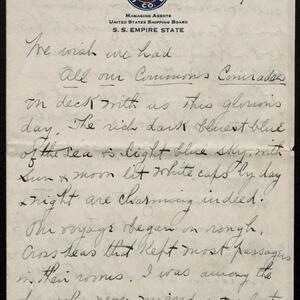 CO.
MANAGING AGENTS
UNITED STATES SHIPPING BOARD
S. S. EMPIRE STATE
We wish we had
All our Commons Comrades
on deck with us this glorious
day. The rich dark bluest blue
of the sea is light blue sky, with
sun & moon lit white caps by day
& night are charming indeed.
Our voyage began on rough,
cross seas that kept most passengers
in their rooms. I was among the